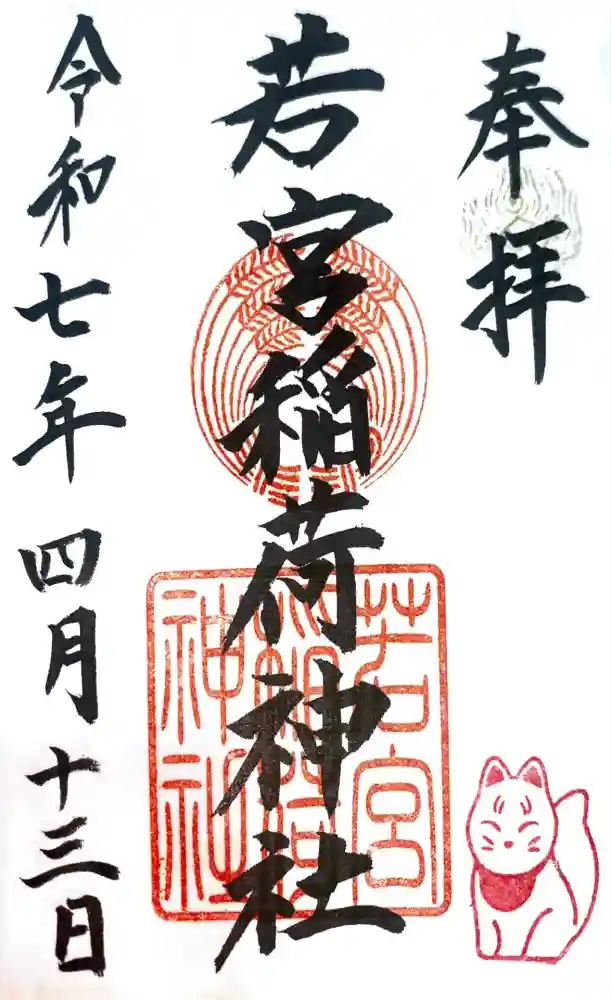 奉拝
若宮稲荷神社
若宮
稲荷
神社
令和七年四月十三日